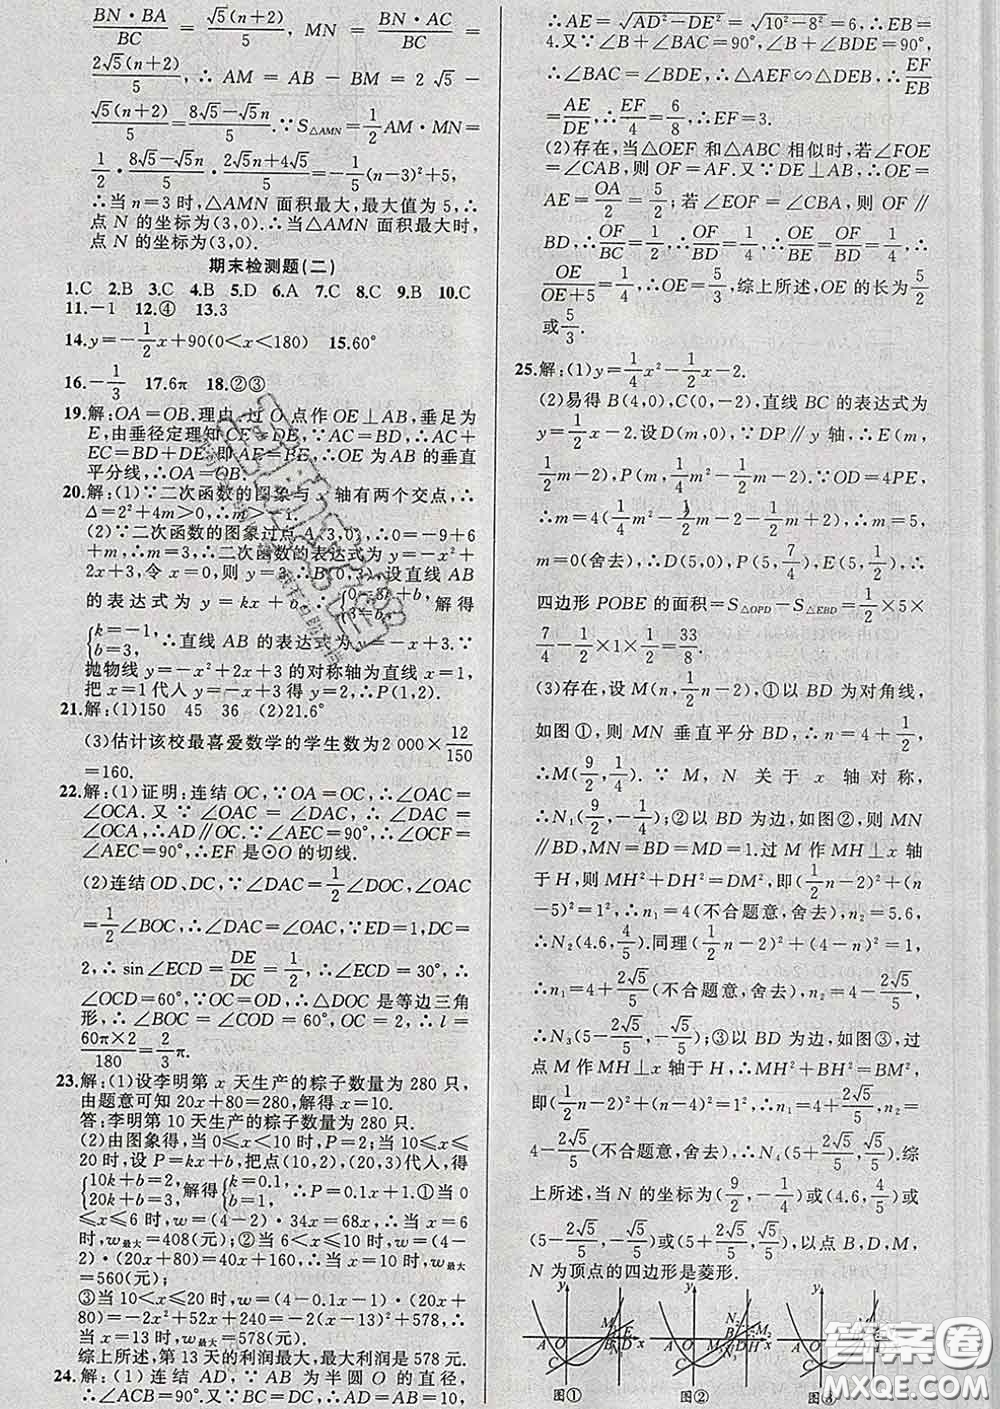 BN·BA/BC=√5(n+2)/5, MN=BN·AC/BC=
2√5(n+2)/5, ∴AM=AB-BM=2√5-
√5(n+2)/5=(8√5-√5n)/5. ∵S△AMN=1/2AM·MN=
1/2·(8√5-√5n)/5·(2√5n+4√5)/5=-1/5(n-3)²+5,
∴当n=3时,△AMN面积最大,最大值为5,∴
点N的坐标为(3,0).∴当△AMN面积最大时,
点N的坐标为(3,0).
期末检测题(二)
1.C 2.B 3.C 4.B 5.D 6.A 7.C 8.C 9.B 10.C
11.-1 12.④ 13.3
14.y=-1/2x+90(0<x<180) 15.60°
16.-1/3 17.6π 18.②③
19.解:OA=OB.理由:过O点作OE⊥AB,垂足为
E,由垂径定理知CE=DE,∵AC=BD,∴AC+
EC=BD+DE,即AE=BE,∴OE为AB的垂直
平分线,∴OA=OB.
20.解:(1)∵二次函数的图象与 轴有两个交点,∴
Δ=2²+4m>0,∴m>-1.
(2)∵二次函数的图象过点A(3,0),∴0=-9+6
+m,∴m=3,∴二次函数的表达式为y=-x²+
2x+3,令x=0,则y=3,∴B(0,3),设直线AB
的表达式为y=kx+b,∴{0=3k+b, 3=b, 解得
{k=-1, b=3, ∴直线AB的表达式为y=-x+3.∵
抛物线y=-x²+2x+3的对称轴为直线x=1,
把x=1代入y=-x+3得y=2,∴P(1,2).
21.解:(1)150 45 36 (2)21.6°
(3)估计该校最喜爱数学的学生数为2 000×12/150
=160.
22.解:(1)证明:连结OC,∵OA=OC,∴∠OAC=
∠OCA.又∵∠OAC=∠DAC,∴∠DAC=
∠OCA,∴AD∥OC.∵∠AEC=90°,∴∠OCF=
∠AEC=90°,∴EF是⊙O的切线.
(2)连结OD,DC,∵∠DAC=1/2∠DOC,∠OAC
=1/2∠BOC,∴∠DAC=∠OAC,∵ED=1,DC=
2,∴sin∠ECD=DE/DC=1/2,∴∠ECD=30°,∴
∠OCD=60°,∵OC=OD,∴△DOC是等边三角
形,∴∠BOC=∠COD=60°,OC=2,∴l=
60π×2/180=2/3π.
23.解:(1)设李明第x天生产的粽子数量为280只,
由题意可知20x+80=280,解得x=10.
答:李明第10天生产的粽子数量为280只.
(2)由图象得,当0≤x<10时,P=2;当10≤x≤
20时,设P=kx+b,把点(10,2),(20,3)代入,得
{10k+b=2, 20k+b=3, 解得{k=0.1, b=1, ∴P=0.1x+1.①当0
≤x≤6时,w=(4-2)·34x=68x,∴当x=6
时,w最大=408(元);②当6<x≤10时,w=(4-
2)·(20x+80)=40x+160,∴当x=10时,w最大
=560(元);
③当10<x≤20时,w=(4-0.1x-1)·(20x+
80)=-2x²+52x+240=-2(x-13)²+578,∴
当x=13时,w最大=578(元).
综上所述,第13天的利润最大,最大利润是578元.
24.解:(1)连结AD,∵AB为半圆O的直径,
∴∠ACB=90°.又∵BC=DC,∴AD=AB=10,
∴AE=√(AD²-DE²)=√(10²-8²)=6,∴EB=
4.又∵∠B+∠BAC=90°,∠B+∠BDE=90°,
∴∠BAC=∠BDE,∴△AEF∽△DEB,∴EF/EB
=AE/DE,∴EF/4=6/8,∴EF=3.
(2)存在,当△OEF和△ABC相似时,若∠FOE
=∠CAB,则OF=AF.又∵DE⊥AB,∴OE=
AE=OA/2=5/2;若∠EOF=∠CBA,则OF∥
BD,∴OF/BD=1/2,∴OF/BF=1/4,∴OE/BE=OF/BD=1/4,∴
OE/(OE+5)=1/4,∴OE=5/3,综上所述,OE的长为5/2
或5/3.
25.解:(1)y=1/4x²-1/2x-2.
(2)易得B(4,0),C(0,-2),直线BC的表达式为
y=1/2x-2.设D(m,0),∵DP∥y轴,∴E(m,
1/2m-2),P(m,1/4m²-1/2m-2).∵OD=4PE,
∴m=4(1/4m²-1/2m-2-1/2m+2),∴m=5,
m=0(舍去),∴D(5,0),P(5,7/4),E(5,1/2),∴
四边形POBE的面积=S△OPD-S△EBD=1/2×5×
7/4-1/2×1×1/2=33/8.
(3)存在,设M(n,1/2n-2),①以BD为对角线,
如图①,则MN垂直平分BD,∴n=4+1/2,
∴M(9/2,1/4).∵M,N关于x轴对称,
∴N₁(9/2,-1/4);②以BD为边,如图②,则MN
∥BD,MN=BD=MD=1.过M作MH⊥x轴
于H,则MH²+DH²=DM²,即(1/2n-2)²+(n
-5)²=1²,∴n₁=4(不合题意,舍去),n₂=5.6,
∴N₂(4.6,4/5).同理(1/2n-2)²+(4-n)²=1,
∴n₁=4+2√5/5(不合题意,舍去),n₂=4-2√5/5,
∴N₃(5-2√5/5,-√5/5);③以BD为边,如图③,过
点M作MH⊥x轴于H,∴MH²+BH²=BM²,
即(1/2n-2)²+(n-4)²=1²,∴n₁=4+2√5/5,n₂=
4-2√5/5(不合题意,舍去),∴N₄(5+2√5/5,√5/5).综
上所述,当N的坐标为(9/2,-1/4)或(4.6,4/5)或
(5-2√5/5,-√5/5)或(5+2√5/5,√5/5),以点B,D,M,
N为顶点的四边形是菱形.
图① 图② 图③
答案圈
MXQE.COM